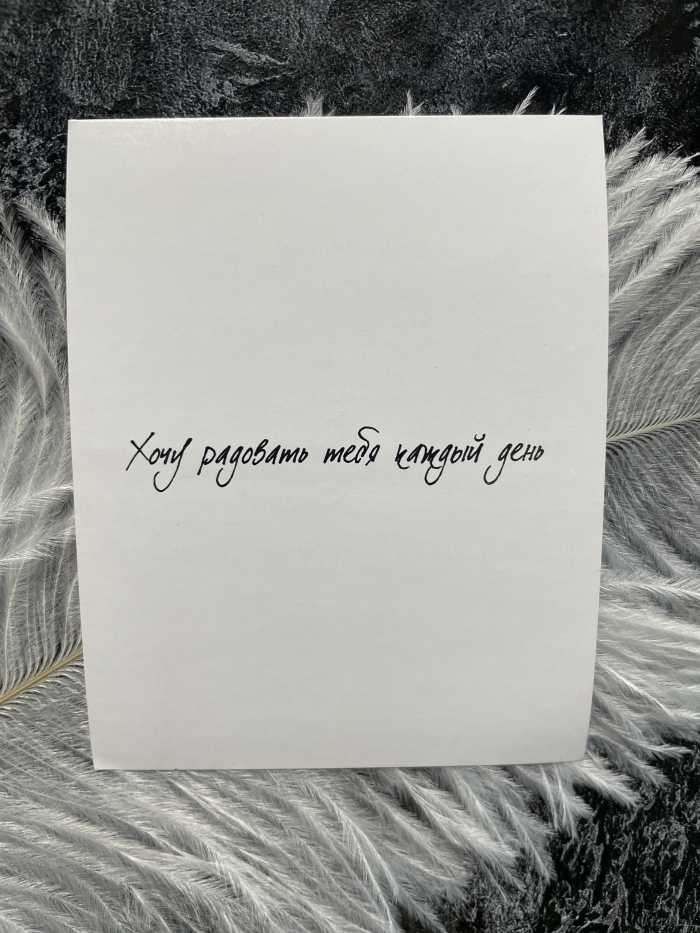 Хочу радовать тебя каждый день